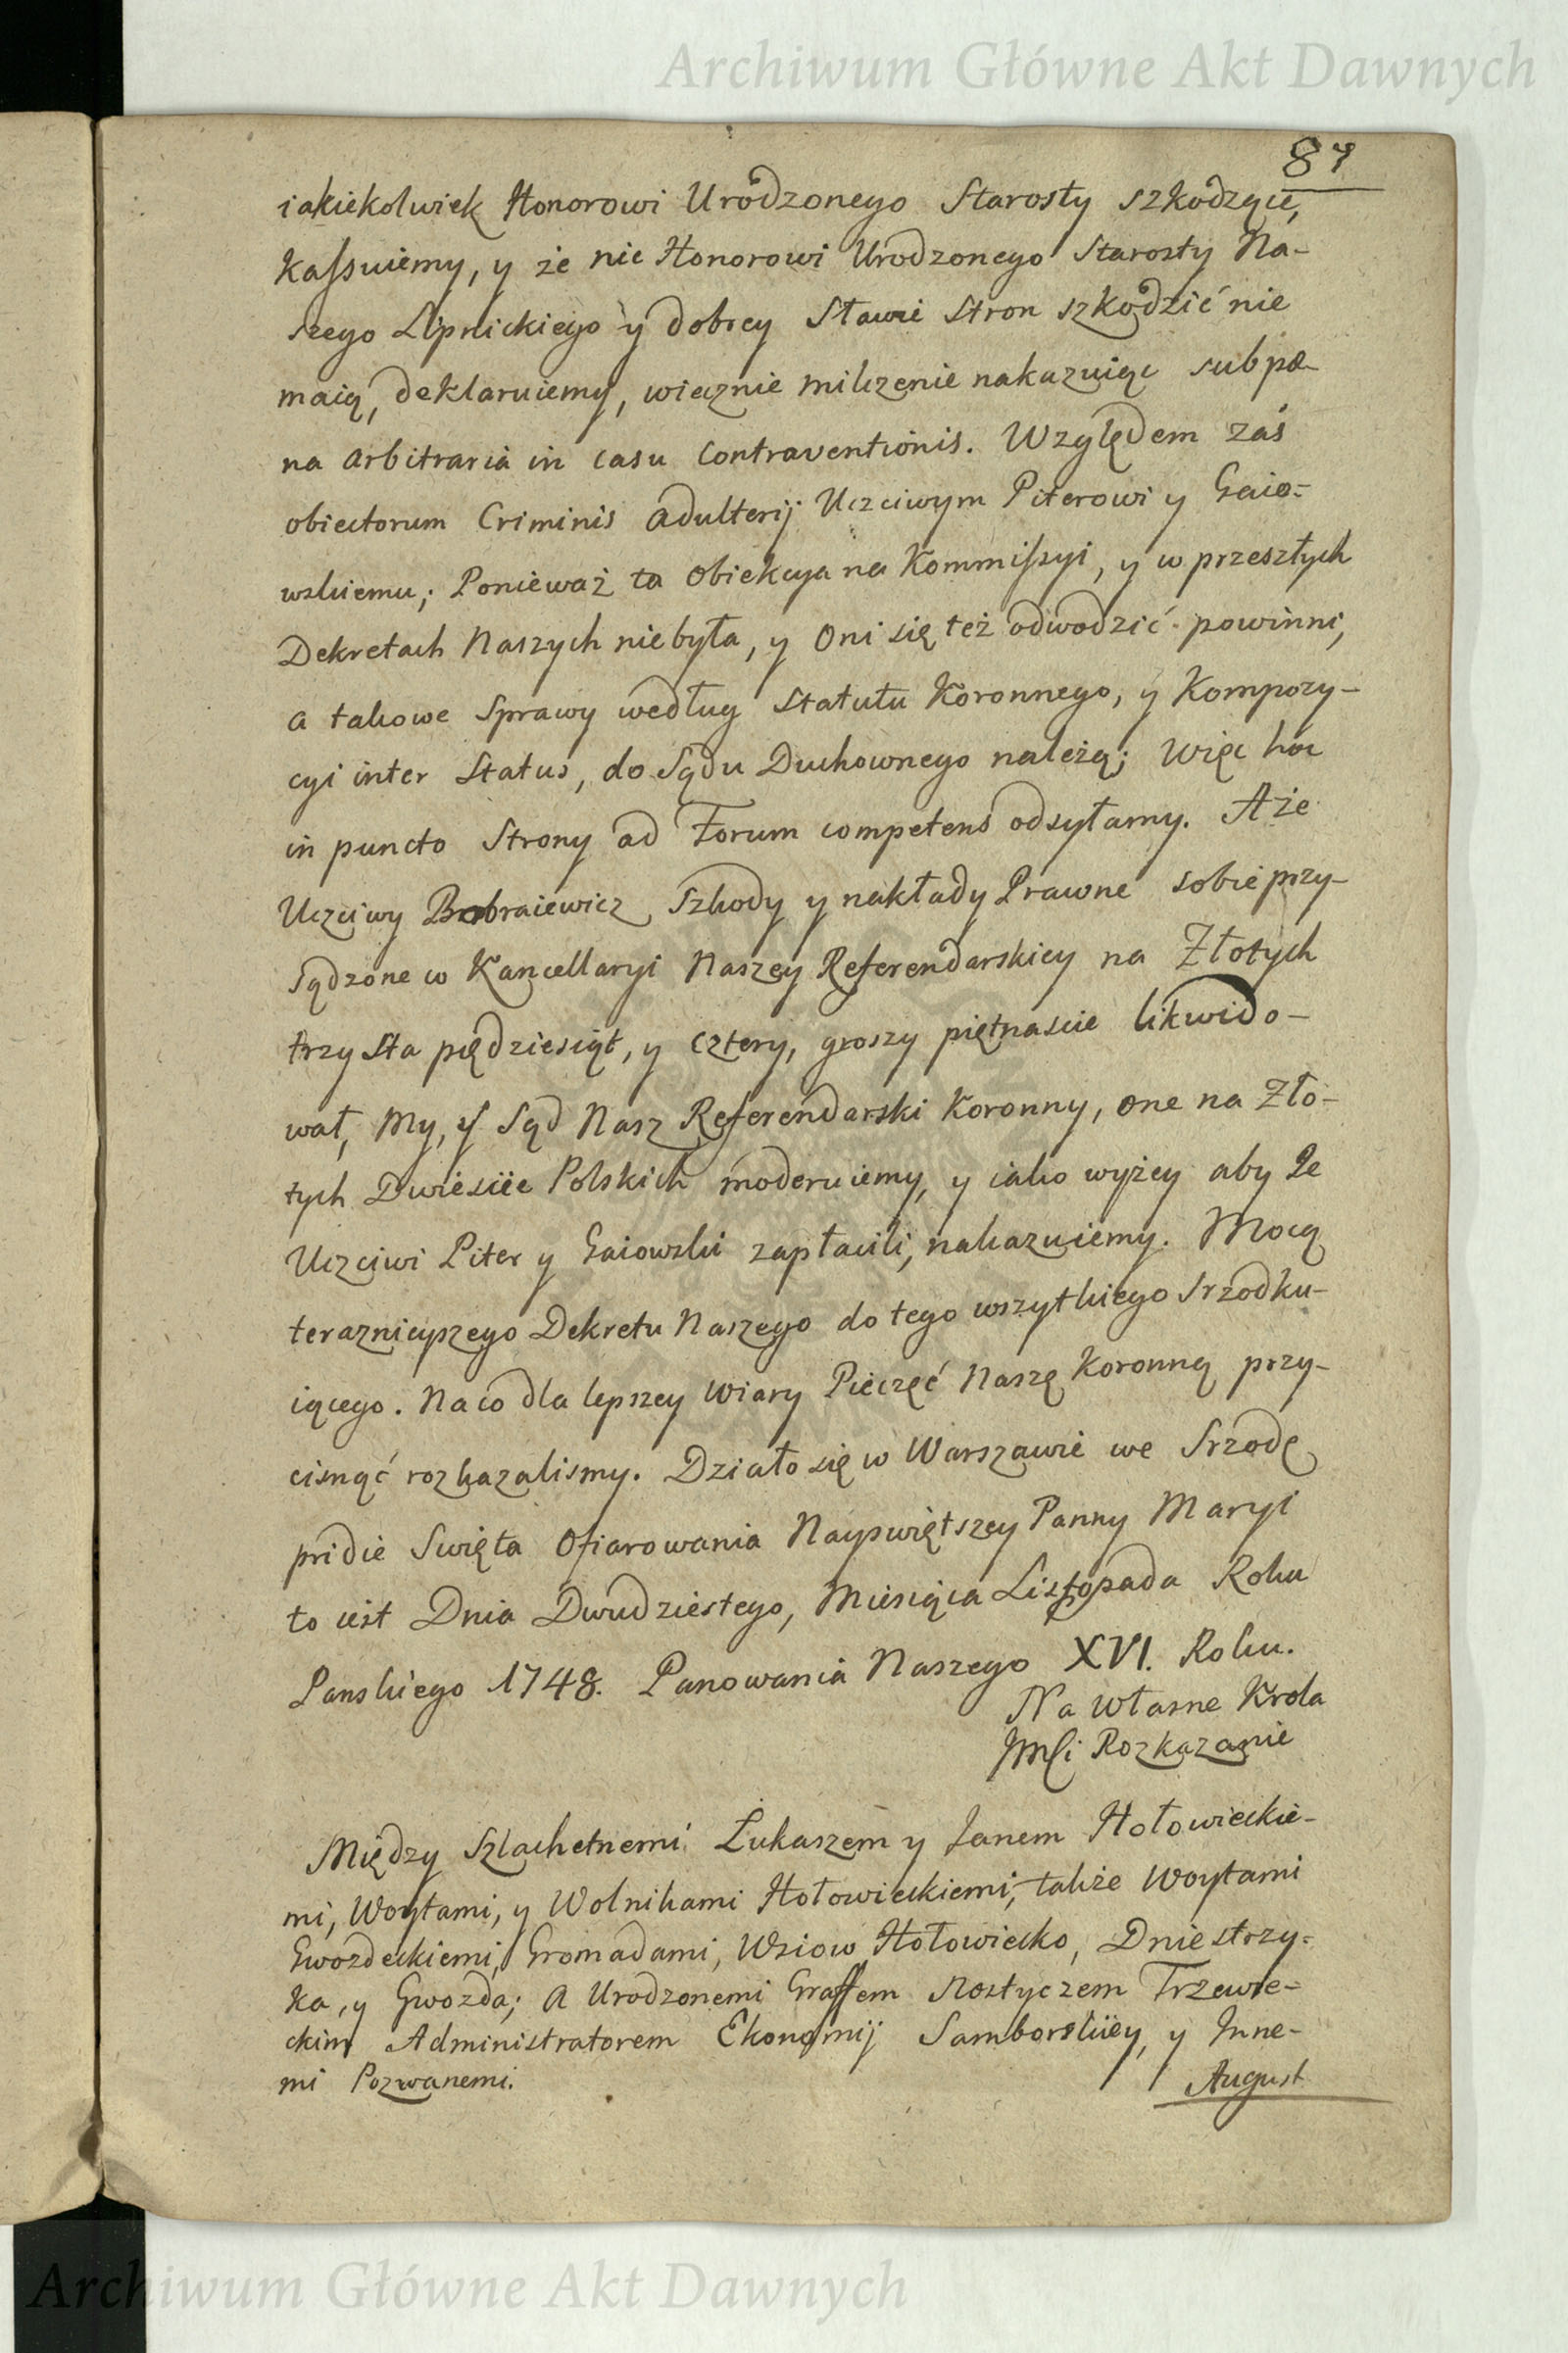 Archiwum Główne Akt Dawnych
87
iakiekolwiek Honorowi Urodzonego Starosty szkodzące,
kassuiemy, y że nic Honorowi Urodzonego Starosty Na-
szego Lipnickiego y dobrey Sławie stron szkodzić nie
maią, deklaruiemy, wieznie milczenie nakazuiąc sub pæ-
na arbitraria in casu contraventionis. Względem zaś
obiectorum Criminis adulterij Uczciwym Piterowi y Gaio-
wskiemu; Ponieważ ta obiekcya na Kommissyi, y w przeszłych
Dekretach Naszych niebyła, y Oni się też odwodzić powinni,
a takowe sprawy według Statutu Koronnego, y Kompozy-
cyi inter Status, do Sądu Duchownego należą; Więc hoc
in puncto Strony ad Forum competens odsyłamy. A że
Uczciwy Bobraiewicz Szkody y nakłady Prawne sobie przy-
sądzone w Kancellaryi Naszey Referendarskiey na Złotych
trzysta piędziesiąt, y cztery, groszy piętnascie likwido-
wał, My, y Sąd Nasz Referendarski Koronny, one na Zło-
tych Dwiescie Polskich moderuiemy, y iako wyżey aby Je
Uczciwi Piter y Gaiowski zapłacili, nakazuiemy. Mocą
teraznieyszego Dekretu Naszego do tego wszytkiego srzodku-
iącego. Na co dla lepszey wiary Pieczęć Naszę Koronną przy-
cisnąć rozkazalismy. Działo się w Warszawie we Srzodę
pridie Swięta Ofiarowania Nayswiętszey Panny Maryi
to iest Dnia Dwudziestego, Miesiąca Listopada Roku
Panskiego 1748. Panowania Naszego XVI. Roku.
Na własne Krola
JMsci Rozkazanie
Między Szlachetnemi Łukaszem y Janem Hołowieckie-
mi, Woytami, y Wolnikami Hołowieckiemi, także Woytami
Gwozdeckiemi, Gromadami, Wsiow Hołowiecko, Dniestrzy-
ka, y Gwozda; A Urodzonemi Graffem Nostyczem Trzewie-
ckim Administratorem Ekonomij Samborskiey, y Inne-
mi Pozwanemi.
August
Archiwum Główne Akt Dawnych